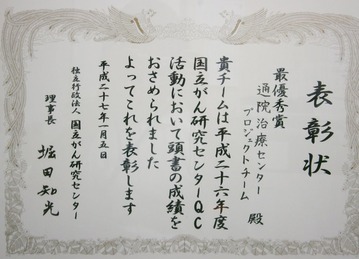 表彰状
最優秀賞
通院治療センター
プロジェクトチーム
殿
貴チームは平成二十六年度
国立がん研究センターQC
活動において頭書の成績を
おさめられました
よってこれを表彰します
平成二十七年一月五日
独立行政法人 国立がん研究センター
理事長 堀田知光